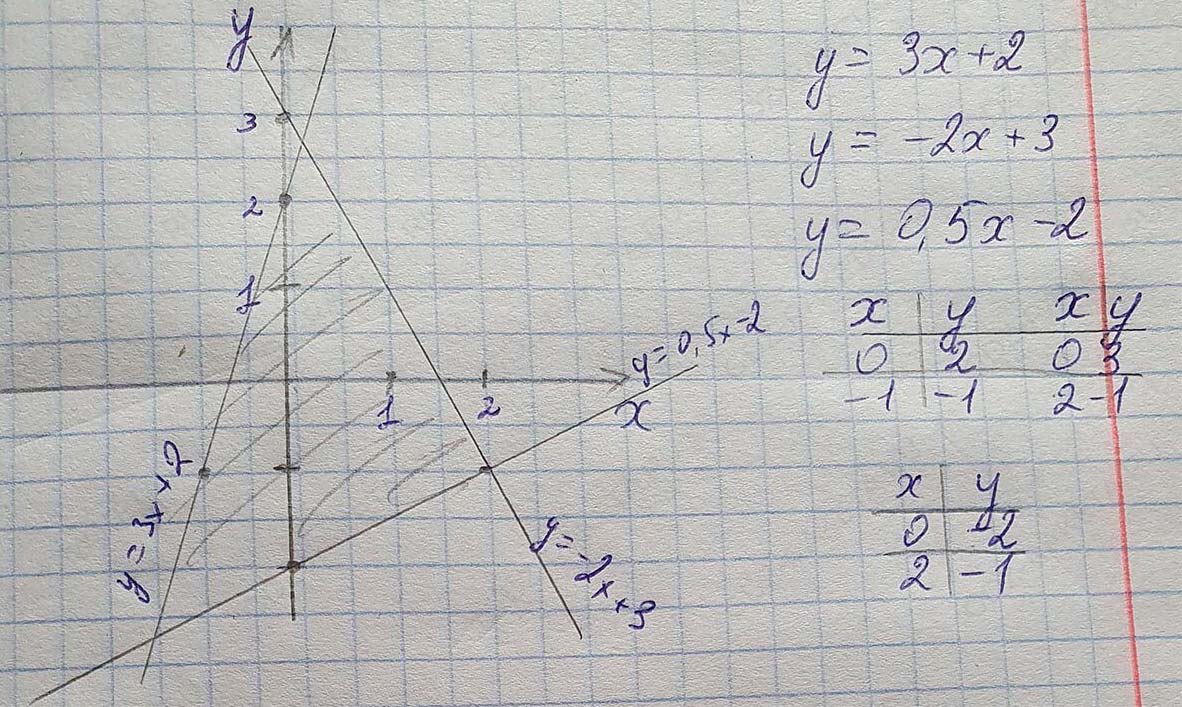 y
3
2
1
1 2
x
y = 3x+2
y = -2x+3
y = 0,5x-2
y = 3x+2
y = -2x+3
y = 0,5x-2
x y x y
0 2 0 3
-1 -1 2 -1
x y
0 -2
2 -1